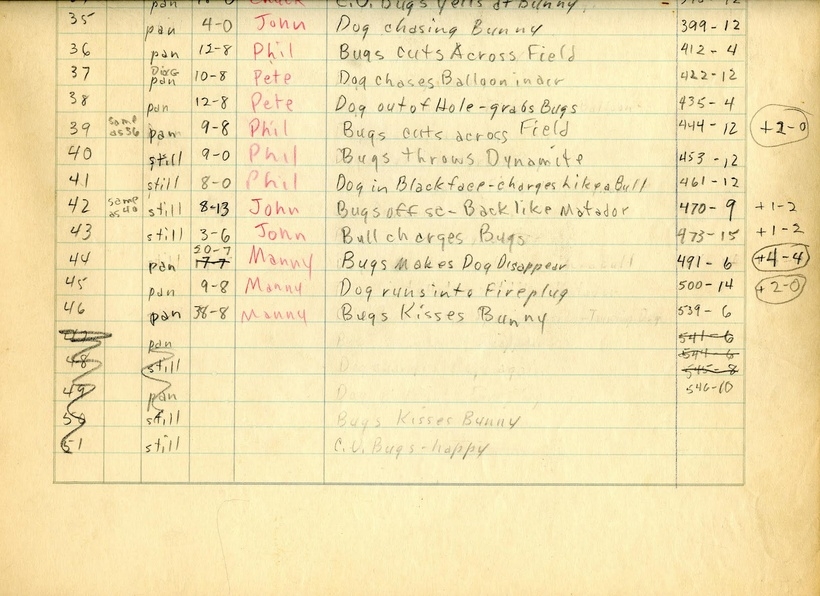 35 pan 4-0 John Dog chasing Bunny 399-12
36 pan 12-8 Phil Bugs cuts Across Field 412-4
37 DIAG pan 10-8 Pete Dog chases Balloon in air 422-12
38 pan 12-8 Pete Dog out of Hole-grabs Bugs 435-4
39 same as 36 pan 9-8 Phil Bugs cuts across Field 444-12
40 still 9-0 Phil Bugs throws Dynamite 453-12
41 still 8-0 Phil Dog in Blackface-charges like a Bull 461-12
42 same as 40 still 8-13 John Bugs off sc-Back like Matador 470-9 +1-2
43 still 3-6 John Bull charges Bugs 473-15 +1-2
44 pan 17-7 Manny Bugs makes Dog Disappear 491-6 +4-4
45 pan 9-8 Manny Dog runs into fireplug 500-14 +2-0
46 pan 38-8 Manny Bugs Kisses Bunny 539-6
47 pan 541-6
48 still 544-6
545-8
49 pan 546-10
50 still Bugs Kisses Bunny
51 still C.U. Bugs-happy